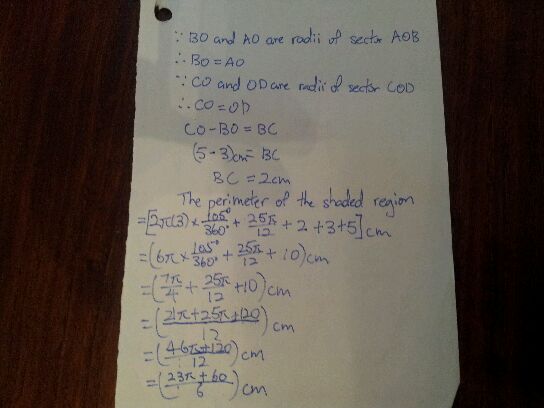 ∵ BO and AO are radii of sector AOB
∴ BO = AO
∵ CO and OD are radii of sector COD
∴ CO = OD
CO - BO = BC
(5 - 3)cm = BC
BC = 2cm
The perimeter of the shaded region
= [2π(3) × 105°/360° + 25π/12 + 2 + 3 + 5] cm
= (6π × 105°/360° + 25π/12 + 10) cm
= (7π/4 + 25π/12 + 10) cm
= (21π + 25π + 120/12) cm
= (46π + 120/12) cm
= (23π + 60/6) cm